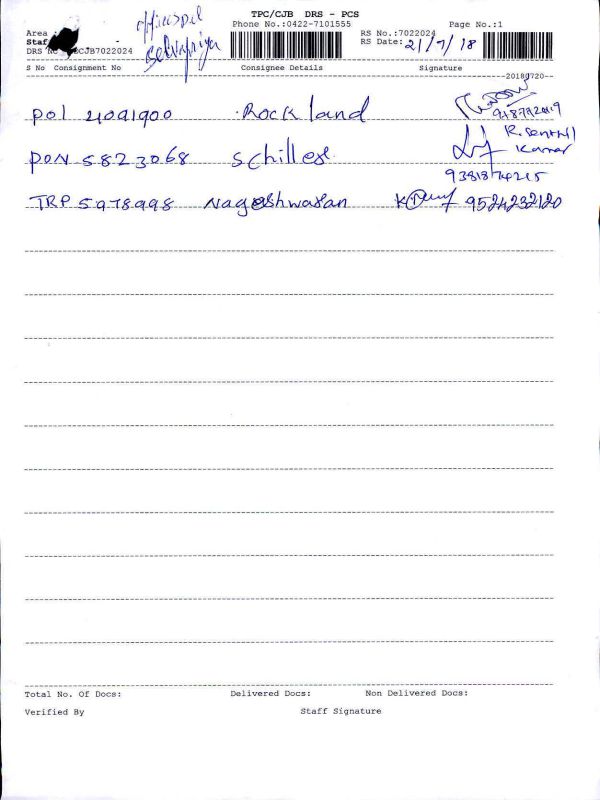 TPC/CJB DRS - PCS
Phone No.:0422-7101555 Page No.:1
Area
Staf -
DRS CJB7022024
RS No.:7022024
RS Date: 21/7/18
selvapriya
S No Consignment No Consignee Details Signature
--20180720--
POL 4091900 Rockland
PON 5823068 Schilles
R. Senthil Kumar
9381874215
TRP 5978998 Nageshwaran 9524232120
Total No. Of Docs: Delivered Docs: Non Delivered Docs:
Verified By Staff Signature